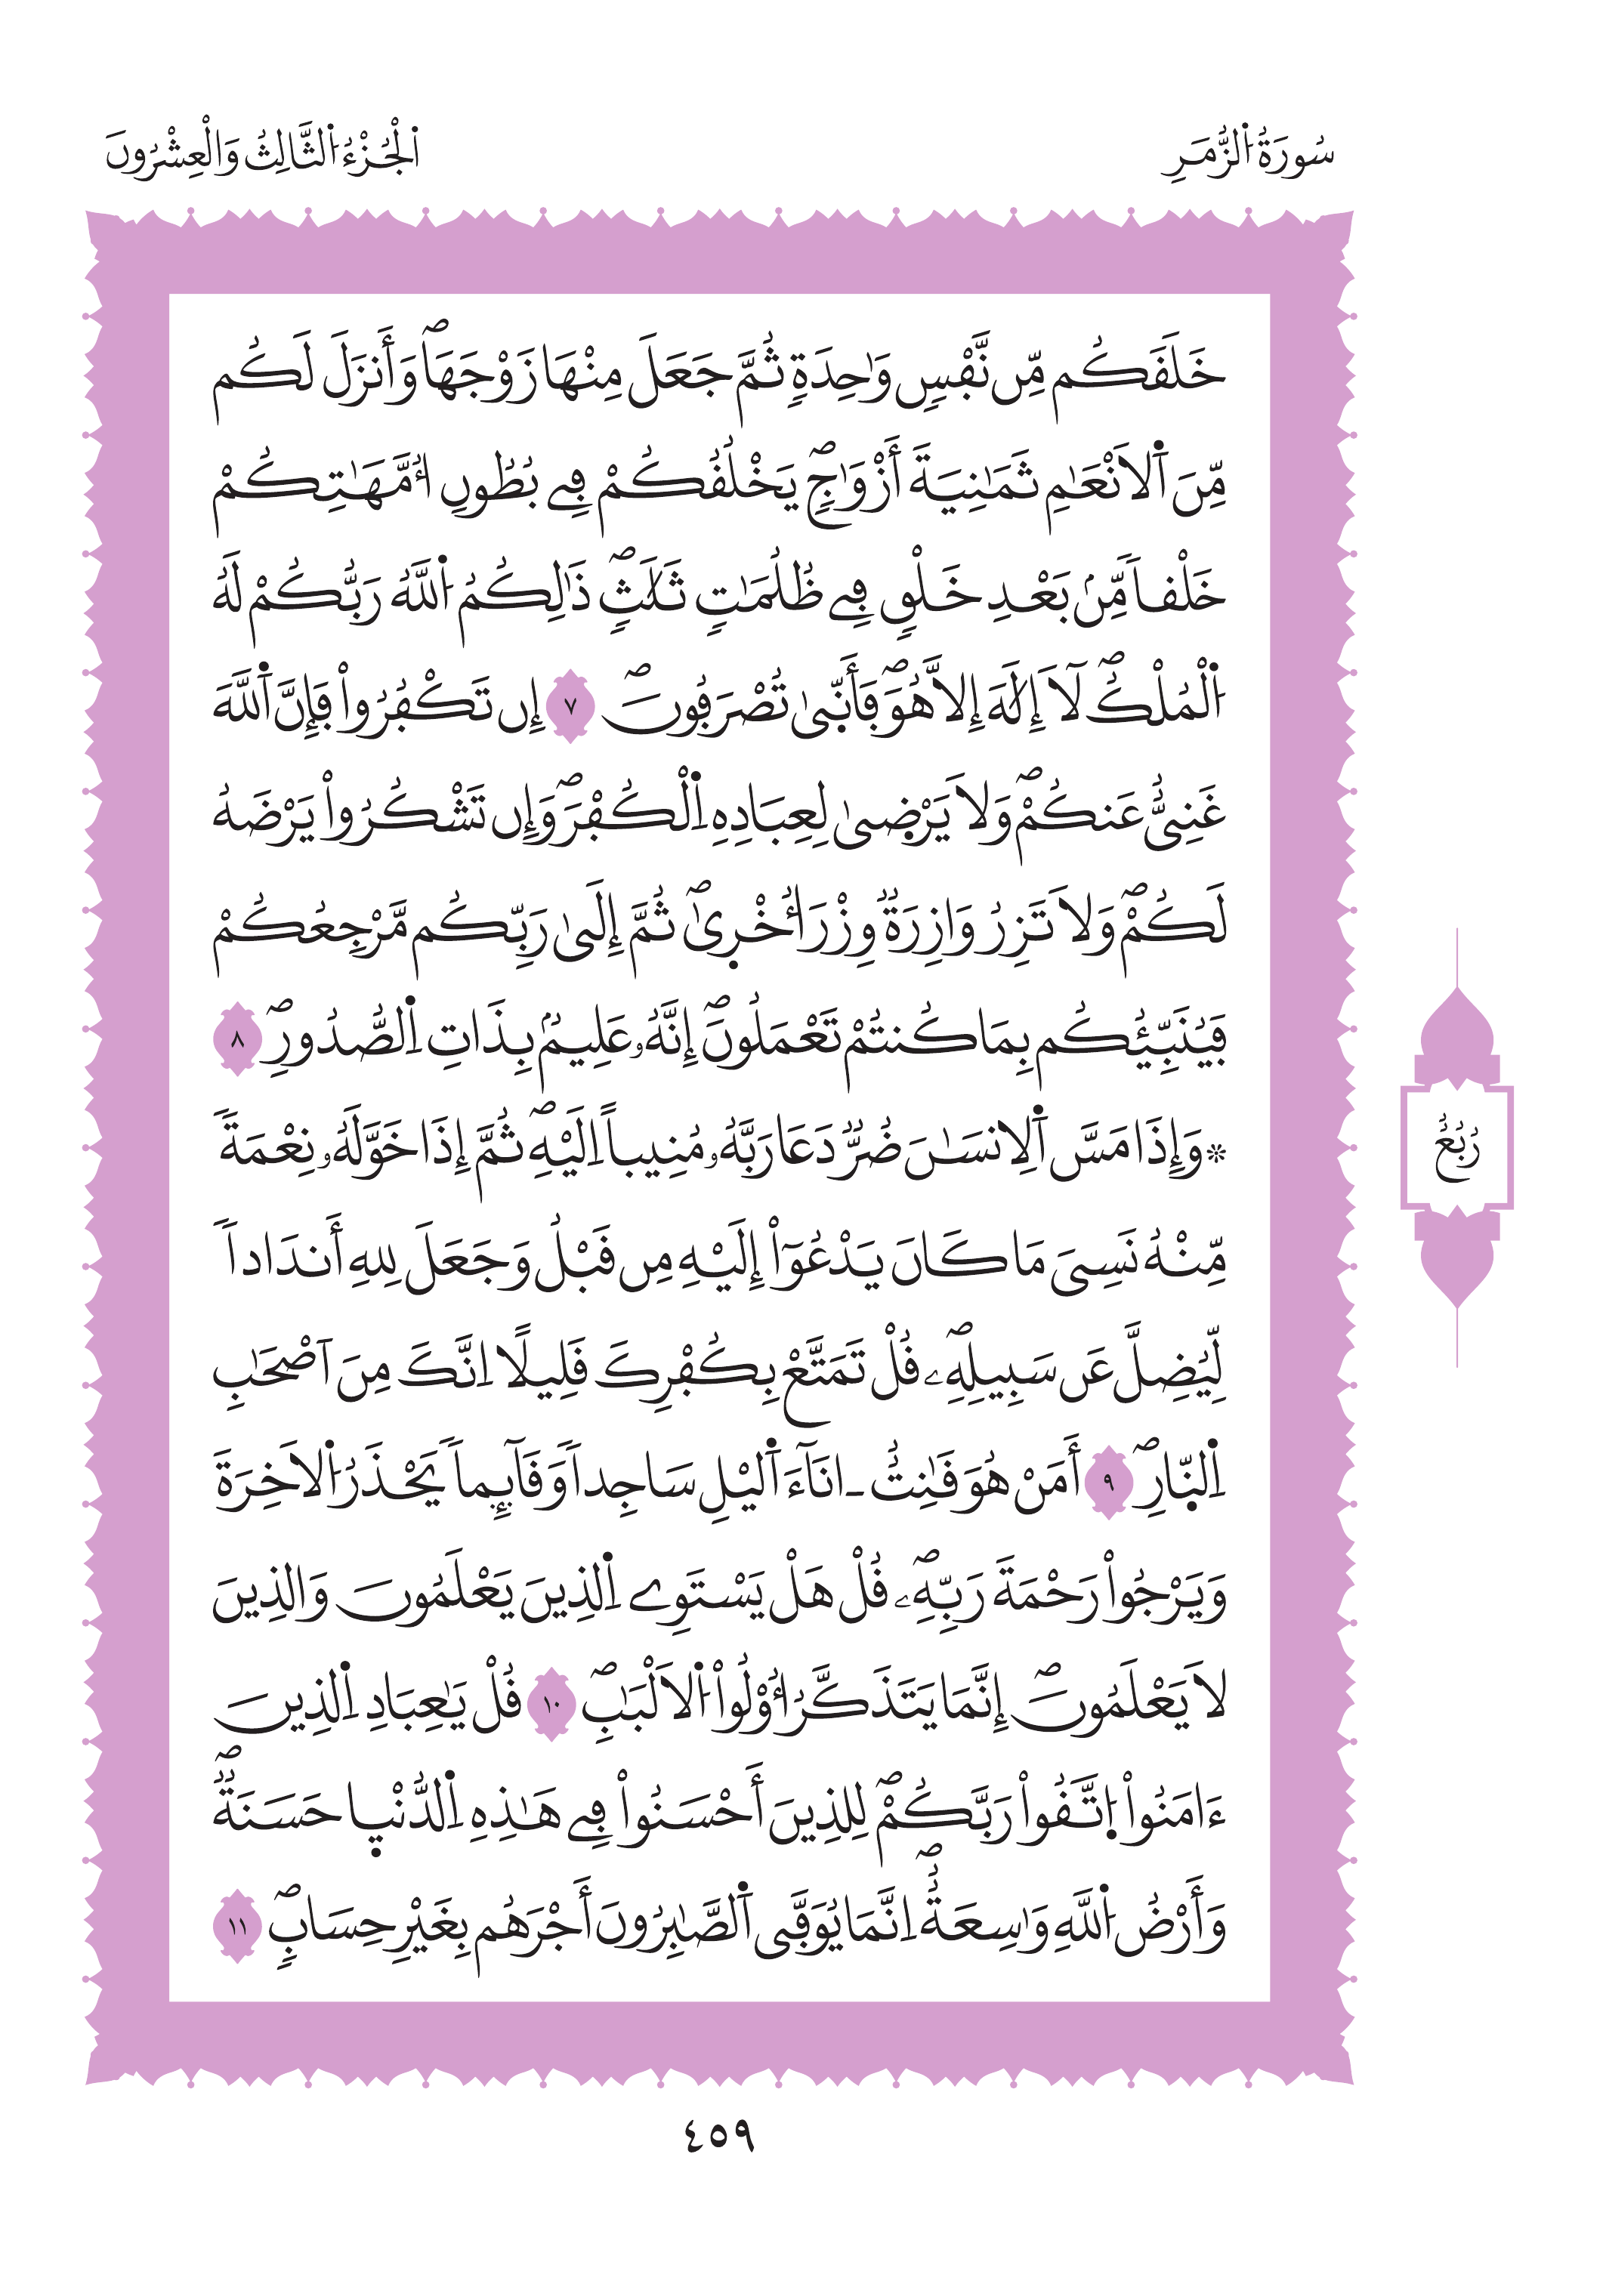 سُورَةُ اُ۬لزُّمَرِ
اَ۬لْجُزْءُ اُ۬لثَّالِثُ وَالْعِشْرُونَ
خَلَقَكُم مِّن نَّفْسٖ وَٰحِدَةٖ ثُمَّ جَعَلَ مِنْهَا زَوْجَهَاۖ وَأَنزَلَ لَكُم
مِّنَ اَ۬لَانْعَٰمِ ثَمَٰنِيَةَ أَزْوَٰجٖۖ يَخْلُقُكُمْ فِے بُطُونِ أُمَّهَٰتِكُمْ
خَلْقاٗ مِّنۢ بَعْدِ خَلْقٖ فِے ظُلُمَٰتٖ ثَلَٰثٖۖ ذَٰلِكُمُ اُ۬للَّهُ رَبُّكُمْ لَهُ
اُ۬لْمُلْكُۖ لَآ إِلَٰهَ إِلَّا هُوَۖ فَأَنّ۪يٰ تُصْرَفُونَۖ ٧ إِن تَكْفُرُواْ فَإِنَّ اَ۬للَّهَ
غَنِيٌّ عَنكُمْۖ وَلَا يَرْض۪يٰ لِعِبَادِهِ اِ۬لْكُفْرَۖ وَإِن تَشْكُرُواْ يَرْضَهُ
لَكُمْۖ وَلَا تَزِرُ وَازِرَةٞ وِزْرَ أُخْر۪يٰۖ ثُمَّ إِلَىٰ رَبِّكُم مَّرْجِعُكُمْ
فَيُنَبِّئُكُم بِمَا كُنتُمْ تَعْمَلُونَۖ إِنَّهُۥ عَلِيمُۢ بِذَاتِ اِ۬لصُّدُورِۖ ٨
۞وَإِذَا مَسَّ اَ۬لِانسَٰنَ ضُرّٞ دَعَا رَبَّهُۥ مُنِيباً اِلَيْهِۖ ثُمَّ إِذَا خَوَّلَهُۥ نِعْمَةٗ
مِّنْهُ نَسِيَ مَا كَانَ يَدْعُوٓاْ إِلَيْهِ مِن قَبْلُ وَجَعَلَ لِلهِ أَندَاداٗ
لِّيُضِلَّ عَن سَبِيلِهِۦۖ قُلْ تَمَتَّعْ بِكُفْرِكَ قَلِيلًا اِنَّكَ مِنَ اَصْحَٰبِ
اِ۬لنّ۪ارِۖ ٩ أَمَنْ هُوَ قَٰنِتٌ ـ اٰنَآءَ اَ۬ليْلِ سَاجِداٗ وَقَآئِماٗ يَحْذَرُ اُ۬لَاخِرَةَ
وَيَرْجُواْ رَحْمَةَ رَبِّهِۦۖ قُلْ هَلْ يَسْتَوِے اِ۬لذِينَ يَعْلَمُونَ وَالذِينَ
لَا يَعْلَمُونَۖ إِنَّمَا يَتَذَكَّرُ أُوْلُواْ اُ۬لَالْبَٰبِۖ ١٠ قُلْ يَٰعِبَادِ اِ۬لذِينَ
ءَامَنُواْ اُ۪تَّقُواْ رَبَّكُمْۖ لِلذِينَ أَحْسَنُواْ فِے هَٰذِهِ اِ۬لدُّنْي۪ا حَسَنَةٞۖ
وَأَرْضُ اُ۬للَّهِ وَٰسِعَةٌۖ اِنَّمَا يُوَفَّى اَ۬لصَّٰبِرُونَ أَجْرَهُم بِغَيْرِ حِسَابٖۖ ١١
رُبُعُ
٤٥٩